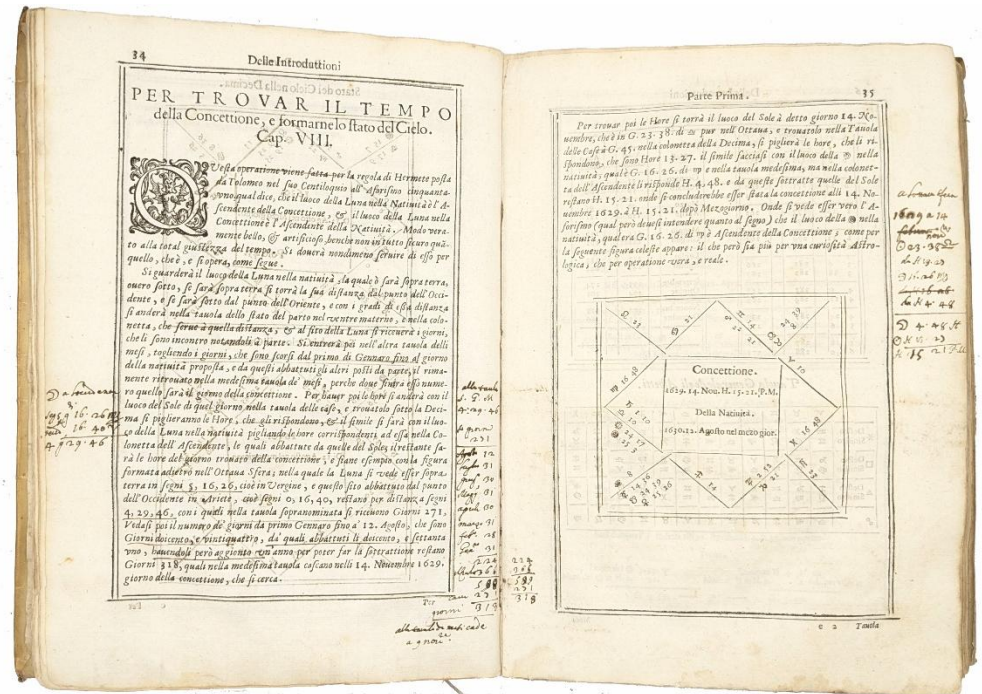 34
Delle Introduttioni
PER TROVAR IL TEMPO
della Concettione, e formarne lo stato del Cielo.
Cap. VIII.
QVesta operatione viene fatta per la regola di Hermete posta
da Tolomeo nel suo Centiloquio all'Aforismo cinquanta-
vno, qual dice, che il luoco della Luna nella Natività è l'A-
scendente della Concettione, & il luoco della Luna nella
Concettione è l'Ascendente della Natività. Modo vera-
mente bello, & artificioso, benche non in tutto sicuro quã-
to alla total giustezza del tempo. Si douerà nondimeno seruire di esso per
quello, che è, e si opera, come segue.
Si guarderà il luoco della Luna nella natività, la quale ò sarà sopra terra,
ouero sotto, se sarà sopra terra si torrà la sua distanza dal punto dell'Occi-
dente, e se sarà sotto dal punto dell'Oriente, e con i gradi di essa distanza
si anderà nella tauola dello stato del parto nel ventre materno, e nella colo-
netta, che serue à quella distanza, & al sito della Luna si riceuerà i giorni,
che li sono incontro notandoli à parte. Si entrerà poi nell'altra tauola delli
mesi, togliendo i giorni, che sono scorsi dal primo di Gennaro fino al giorno
della natività proposta, e da questi abbattuti gli altri posti da parte, il rima-
nente ritrouato nella medesima tauola de' mesi, perche doue finirà esso nume-
ro quello sarà il giorno della concettione. Per hauer poi le hore si anderà con il
luoco del Sole di quel giorno nella tauola delle case, e trouatolo sotto la Deci-
ma si piglieranno le Hore, che gli rispondono, & il simile si farà con il luo-
co della Luna nella natività pigliando le hore corrispondenti ad essa nella Co-
lonetta dell'Ascendente, le quali abbattute da quelle del Sole, il restante sa-
rà le hore del giorno trouato della concettione, e siane esempio con la figura
formata adietro nell'Ottaua Sfera; nella quale la Luna si vede esser sopra-
terra in segni 5, 16, 26, cioè in Vergine, e questo sito abbattuto dal punto
dell'Occidente in Ariete, cioè segni 0, 16, 40, restano per distanza segni
4, 29, 46, con i quali nella tauola sopranominata si riceuono Giorni 271,
Vedasi poi il numero de' giorni da primo Gennaro fino a' 12. Agosto, che sono
Giorni doicento, e vintiquattro, da' quali abbattuti li doicento, e settanta
vno, hauendoli però aggionto vn'anno per poter far la sottrattione restano
Giorni 318, quali nella medesima tauola cascano nelli 14. Nouembre 1629.
giorno della concettione, che si cerca.
Per
giorni
4 29 46
271
12
31
30
31
aprile 30
marzo 31
28
31
224
318
224
365
589
271
318
Parte Prima.
35
Per trouar poi le Hore si torrà il luoco del Sole à detto giorno 14. No-
uembre, che è in G. 23. 38. di ♏ pur nell'Ottaua, e trouatolo nella Tauola
delle Case à G. 45. nella colonetta della Decima, si piglierà le hore, che li ri-
spondono, che sono Hore 13. 27. il simile facciasi con il luoco della ☽ nella
natività, qual è G. 16. 26. di ♍ e nella tauola medesima, ma nella colonet-
ta dell'Ascendente li risponde H. 4. 48. e da queste sottratte quelle del Sole
restano H. 15. 21. onde si concluderebbe esser stata la concettione alli 14. No-
uembre 1629. à H. 15. 21. dopò Mezogiorno. Onde si vede esser vero l'A-
forismo (qual però deuesi intendere quanto al segno) che il luoco della ☽ nella
natività, qual era G. 16. 26. di ♍ è Ascendente della Concettione, come per
la seguente figura celeste appare: il che però sia più per vna curiosità Astro-
logica, che per operatione vera, e reale.
Concettione.
1629. 14. Nou. H. 15. 21. P. M.
Della Natiuità.
1630. 12. Agosto nel mezo gior.
1629 a 14
4 48
15 21
c 2 Tauola